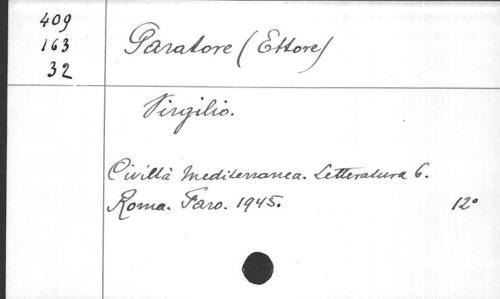 409
163
32
Paratore (Ettore)
Virgilio.
Civiltà Mediterranea. Letteratura 6.
Roma. Faro. 1945. 12°